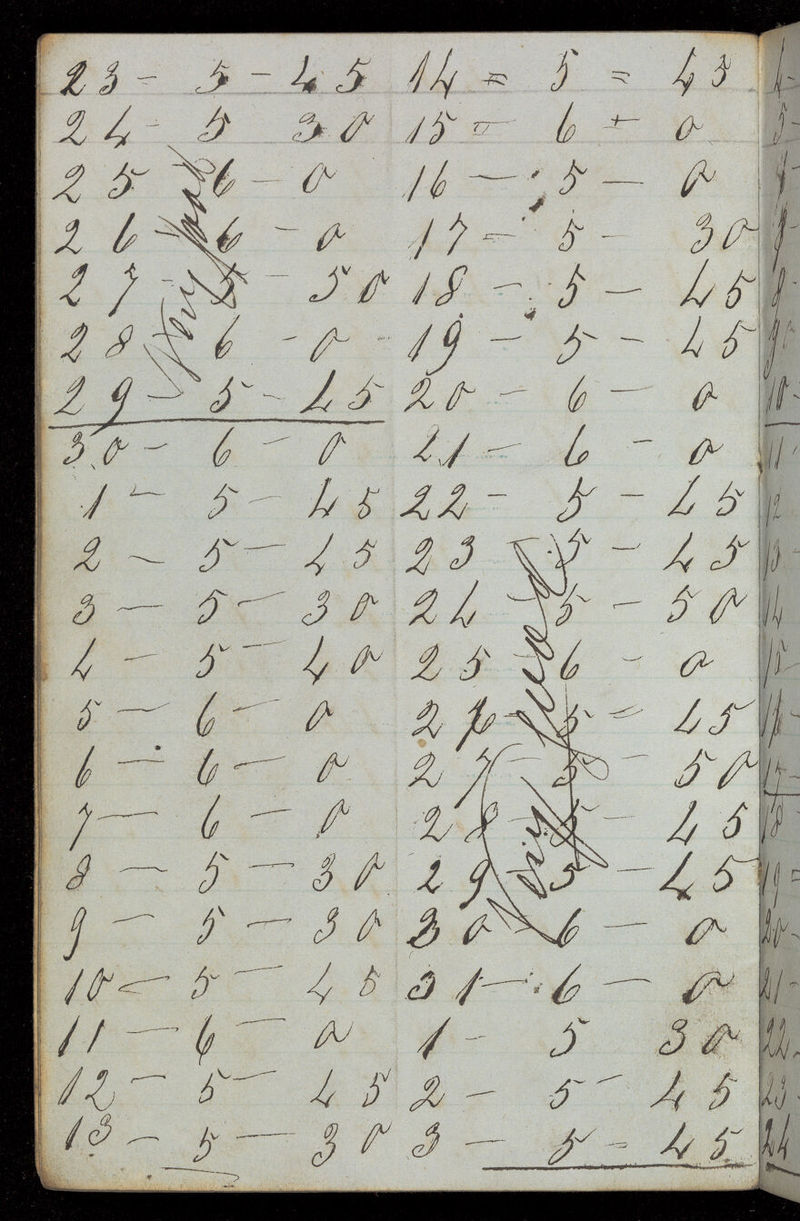 23 - 5 - 45
24 - 5 30
25 6 - 0
26 6 - 0
27 - 5 - 50
28 6 - 0
29 - 5 - 45
30 - 6 - 0
1 - 5 - 45
2 - 5 - 45
3 - 5 - 30
4 - 5 - 40
5 - 6 - 0
6 - 6 - 0
7 - 6 - 0
8 - 5 - 30
9 - 5 - 30
10 - 5 - 45
11 - 6 - 0
12 - 5 - 45
13 - 5 - 30
Very good
14 = 5 = 45
15 = 6 + 0
16 - 5 - 0
17 - 5 - 30
18 - 5 - 45
19 - 5 - 45
20 - 6 - 0
21 - 6 - 0
22 - 5 - 45
23 5 - 45
24 5 - 50
25 6 - 0
26 - 5 - 45
27 - 5 - 50
28 - 5 - 45
29 5 - 45
30 - 6 - 0
31 - 6 - 0
1 - 5 30
2 - 5 - 45
3 - 5 - 45
Very good
10 -
11
12
13
14
15
18
19 =
20 -
21 -
22 -
23 -
24